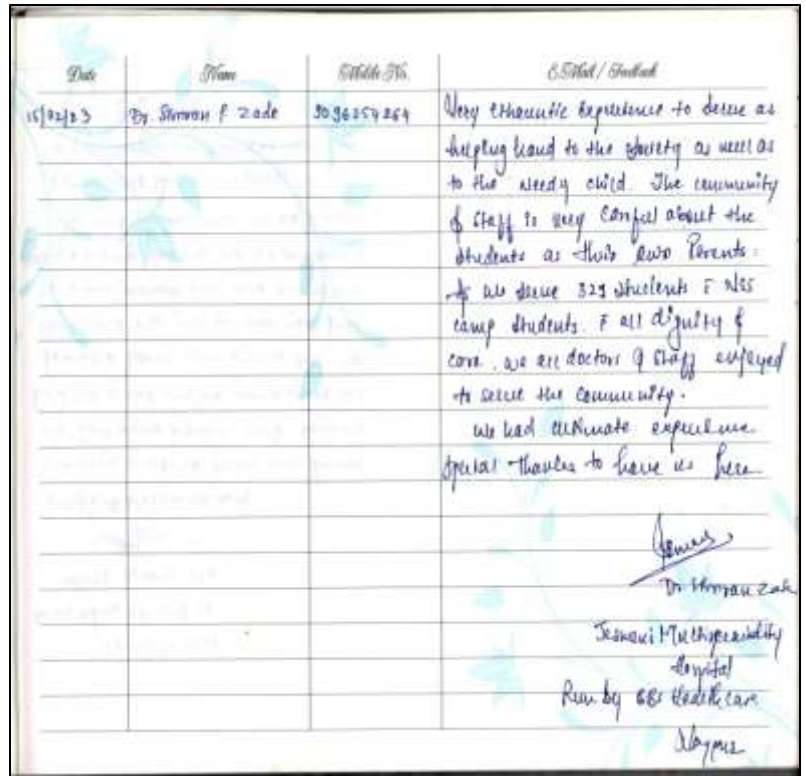 Date Name Mobile No. E.Mail / Feedback
15/02/23 Dr. Shrwan P. Zade 9096254264 Very Experience to serve as
helping hand to the society as well as
to the needy child. The community
of staff is very about the
students as their own Parents.
As we serve 329 students NSS
camp students. all dignity of
care. we all doctors & staff enjoyed
to serve the community.
we had ultimate experience
special thanks to have us here
Dr Shrwan Zade
Jeswani Multispeciality
Hospital
Run by Healthcare
Nagpur